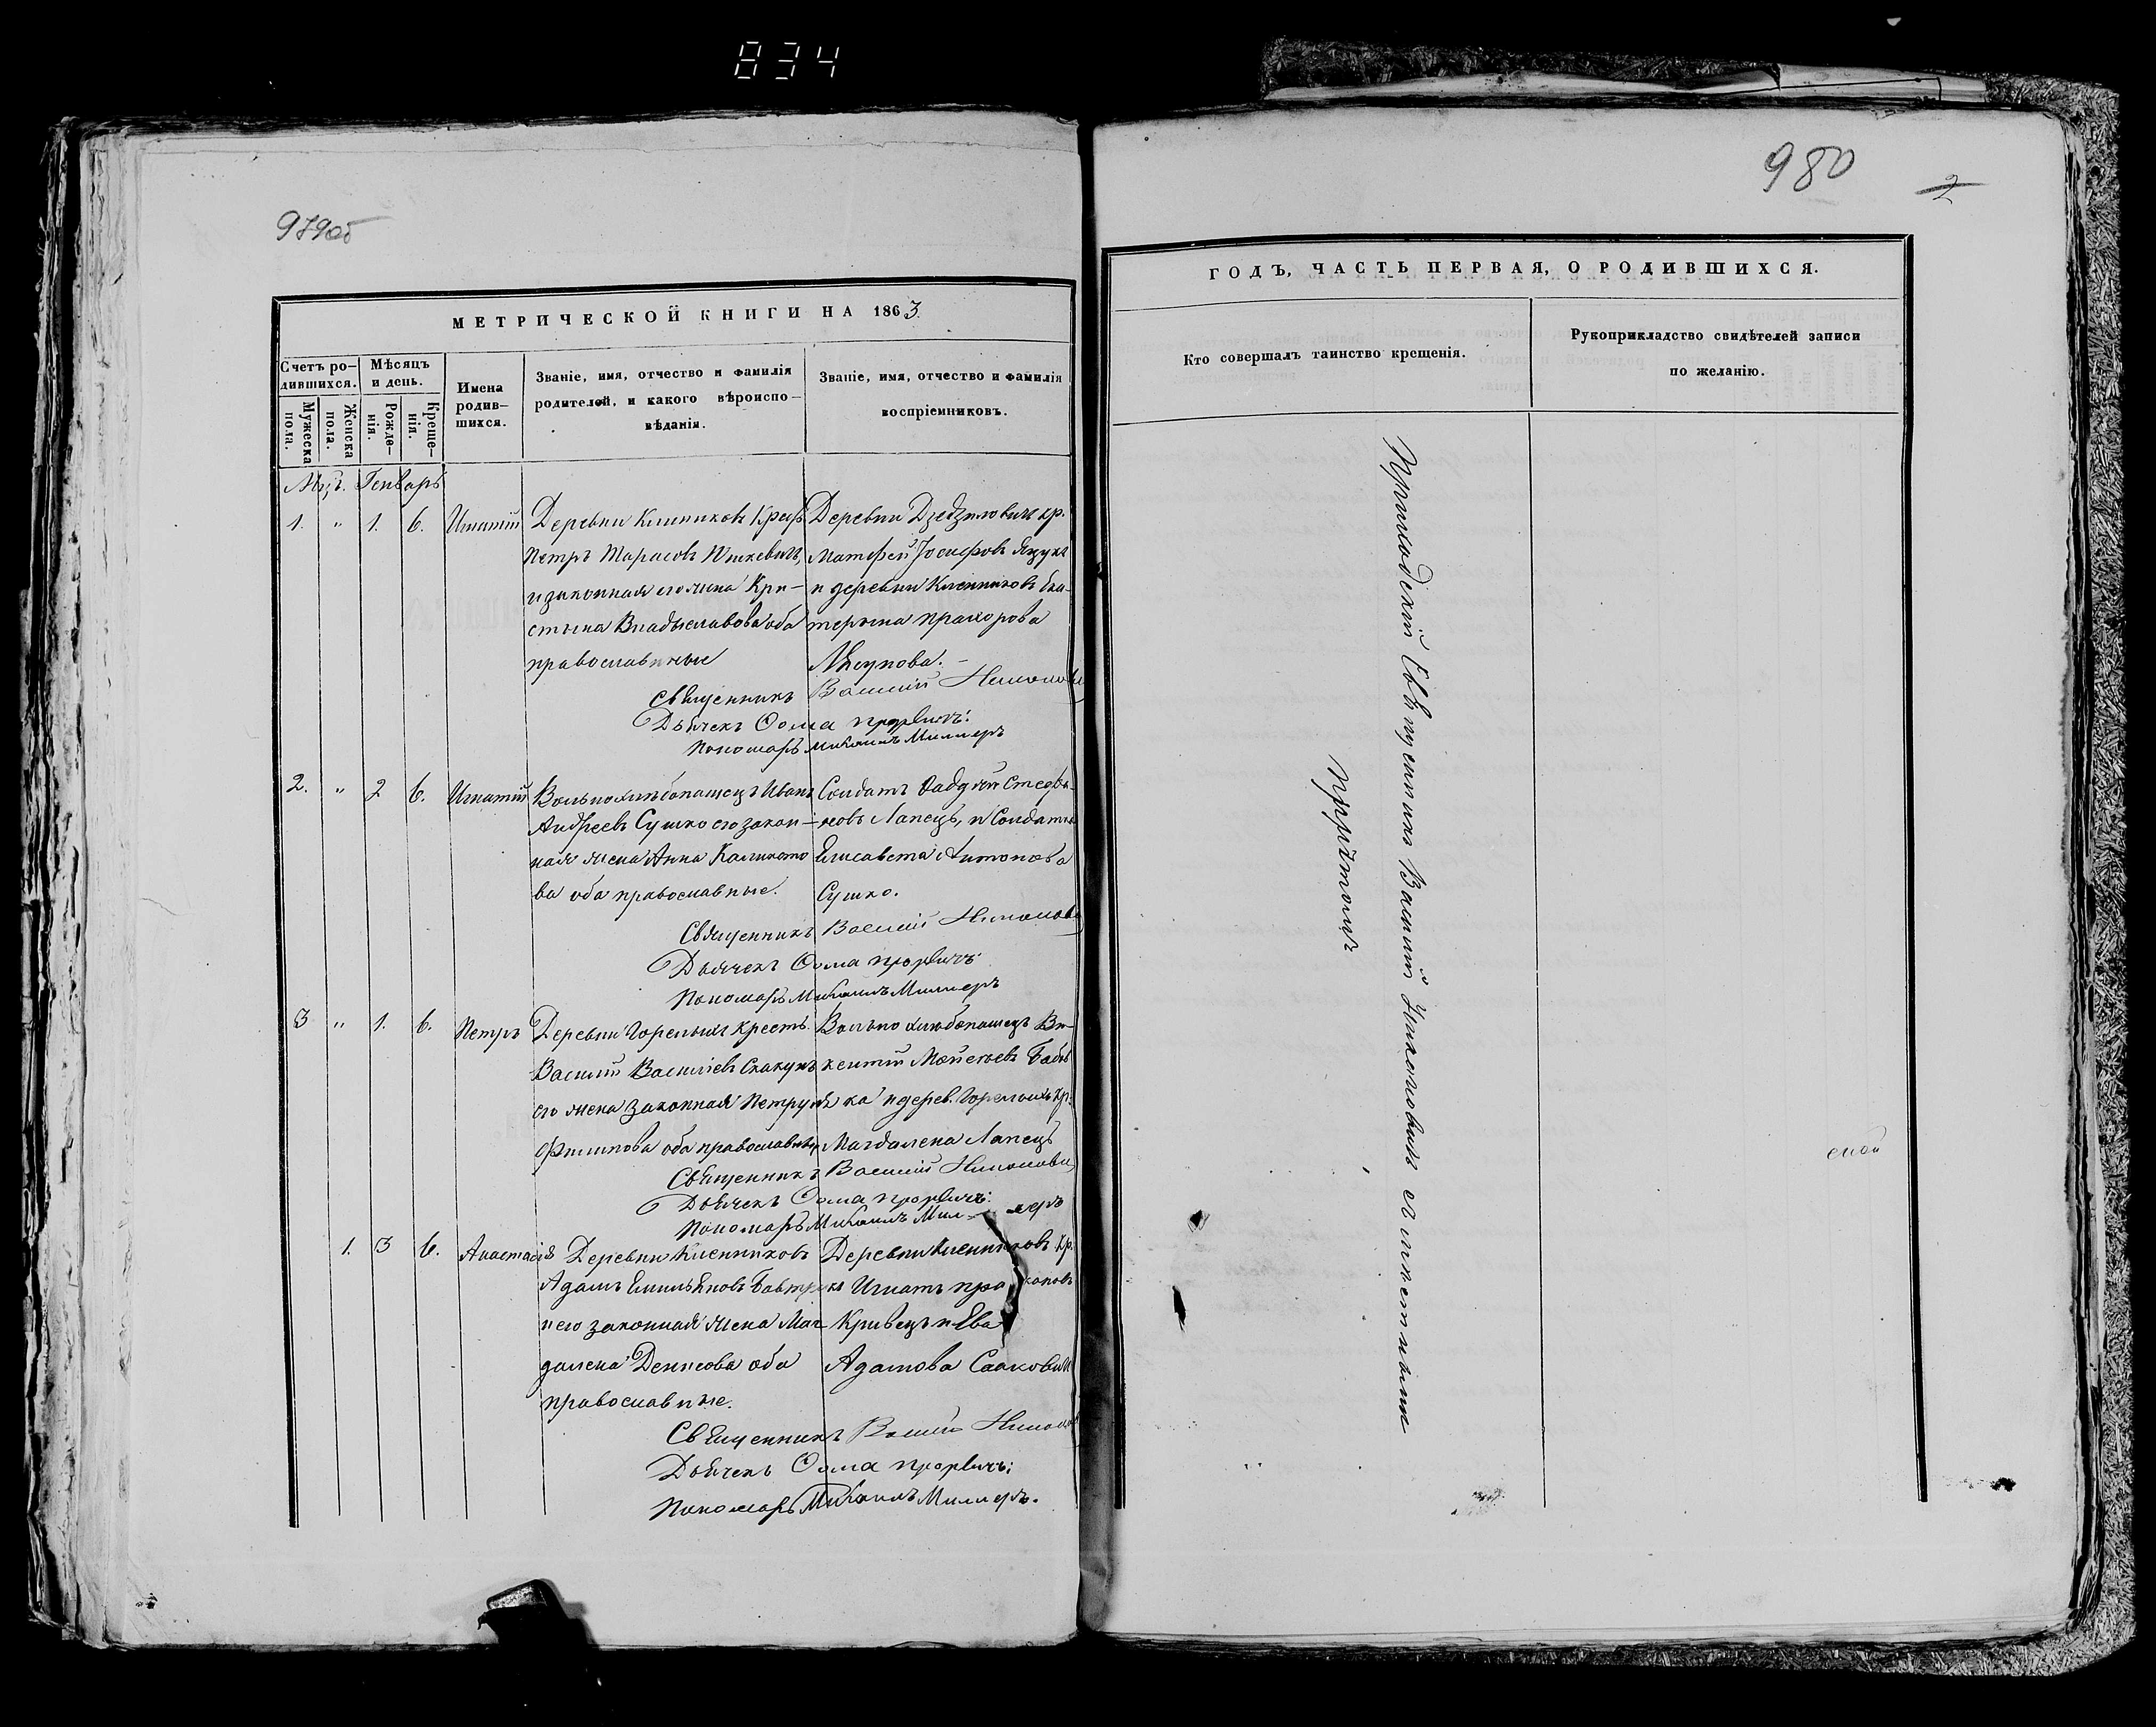 834
979об
МЕТРИЧЕСКОЙ КНИГИ НА 1863
Счетъ ро-
дившихся.
Мѣсяцъ
и день.
Мужеска
пола.
Женска
пола.
Рожде-
нія.
Креще-
нія.
Имена
родив-
шихся.
Званіе, имя, отчество и фамилія
родителей, и какого вѣроиспо-
вѣданія.
Званіе, имя, отчество и фамилія
воспріемниковъ.
Генварь
1. " 1. 6. Игнатій
Деревни Клепиковъ
Петръ Тарасовъ
и законная его жена Кри-
стына Владыславова оба
православные
Деревни кр.
Матфей Іосифовъ
и деревни Клепиковъ Ека-
терына Прахорова
Священникъ Василій
Дьячекъ Ѳома
Пономарь Михаилъ Миллеръ
2. " 2 6. Игнатій
Вольнохлѣбопашецъ Иванъ
Андреевъ Сушко его закон-
ная жена Анна
ва оба православные.
Солдатъ Фаддѣй Стефа-
новъ Лапецъ, и Солдатка
Елисавета Антонова
Сушко.
Священникъ Василій
Дьячекъ Ѳома
Пономарь Михаилъ Миллеръ
3 " 1. 6. Петръ
Деревни Горелыхъ крестъ.
Василій Васильевъ Скакунъ
его жена законная
Филипова оба православные
Вольнохлѣбопашецъ Ви-
кентій
ка и дерев. Горелыхъ кр.
Магдалена Лапецъ
Священникъ Василій
Дьячекъ Ѳома
Пономарь Михаилъ Миллеръ
1. 3 6. Анастасія
Деревни Клепиковъ
Адамъ Емильяновъ
и его законная жена Маг-
далена Денисова оба
православные.
Деревни Клепиковъ кр.
Игнатъ
Кривецъ и Ева
Адамова
Священникъ Василій
Дьячекъ Ѳома
Пономарь Михаилъ Миллеръ.
980
2
ГОДЪ, ЧАСТЬ ПЕРВАЯ, О РОДИВШИХСЯ.
Кто совершалъ таинство крещенія.
Рукоприкладство свидѣтелей записи
по желанію.
Приходскій Священникъ Василій съ
Причтомъ